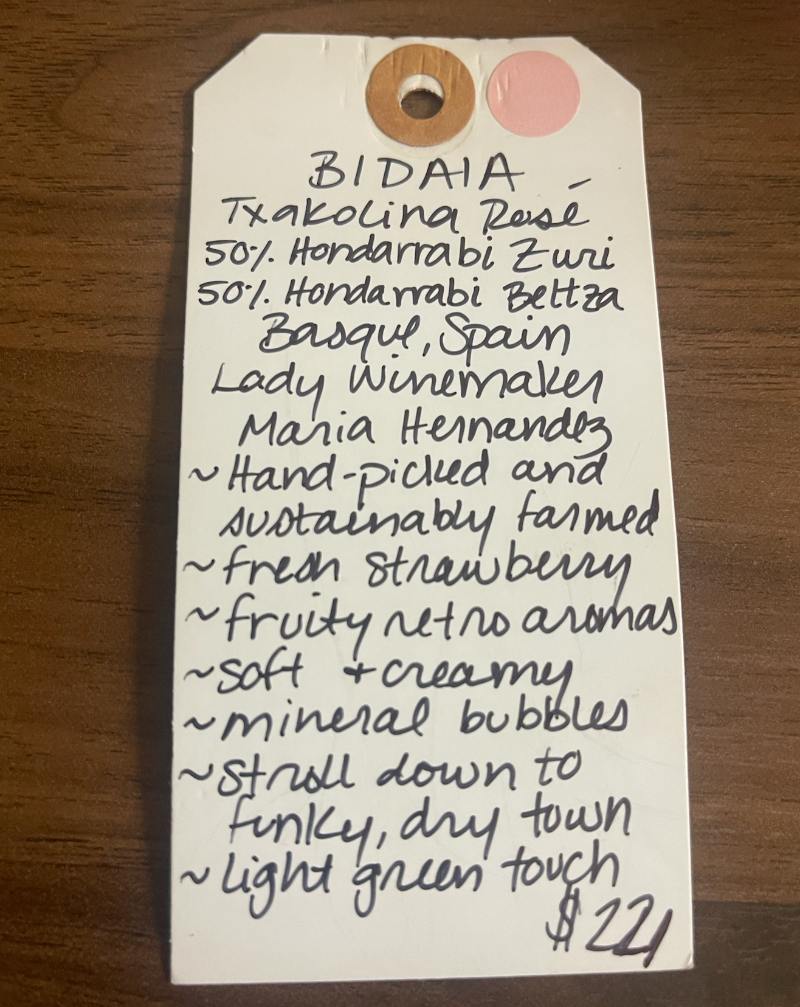 BIDAIA
Txakolina Rosé
50% Hondarrabi Zuri
50% Hondarrabi Beltza
Basque, Spain
Lady Winemaker
Maria Hernandez
~ Hand-picked and
sustainably farmed
~ fresh strawberry
~ fruity retro aromas
~ soft + creamy
~ mineral bubbles
~ stroll down to
funky, dry town
~ light green touch